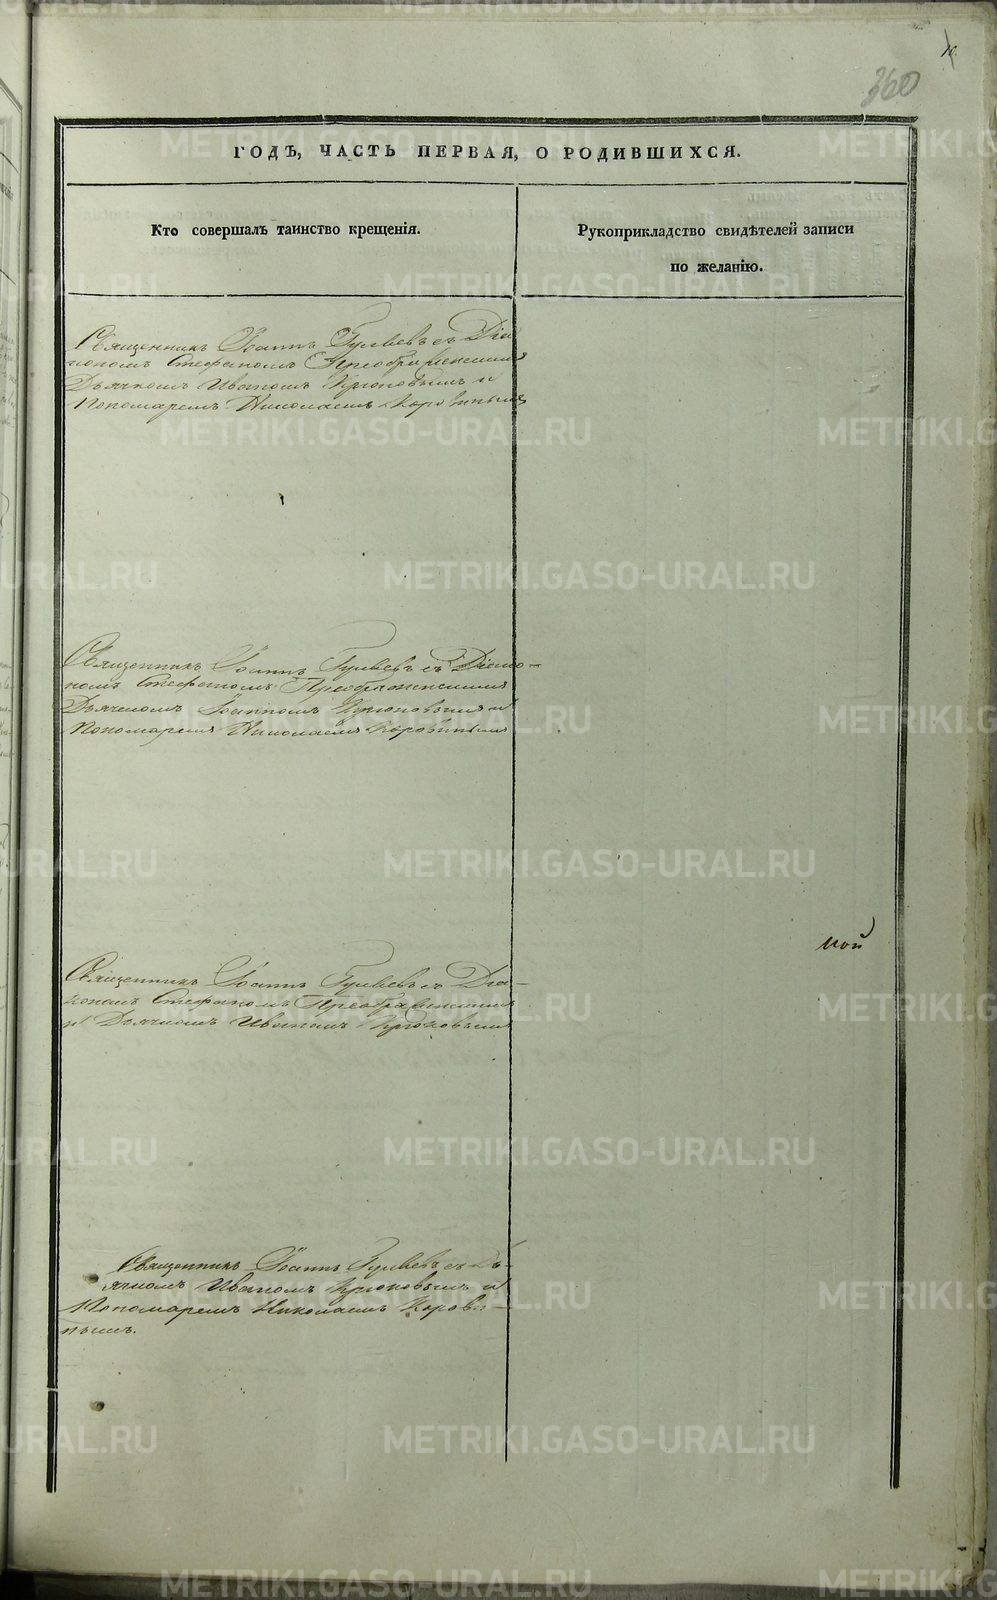 10
360
ГОДЪ, ЧАСТЬ ПЕРВАЯ, О РОДИВШИХСЯ.
Кто совершалъ таинство крещенія.
Рукоприкладство свидѣтелей записи
по желанію.
Священникъ Іоаннъ Гуляевъ съ Діа
кономъ Стефаномъ Преображенскимъ
Дьячкомъ Иваномъ Крюковымъ и
Пономаремъ Николаемъ Коровинымъ
Священникъ Іоаннъ Гуляевъ съ Діако-
номъ Стефаномъ Преображенскимъ
Дьячкомъ Іоанномъ Крюковымъ и
Пономаремъ Николаемъ Коровинымъ
Священникъ Іоаннъ Гуляевъ съ Діа-
кономъ Стефаномъ Преображенскимъ
и Дьячкомъ Иваномъ Крюковымъ
ной
Священникъ Іоаннъ Гуляевъ съ Дь-
ячкомъ Иваномъ Крюковымъ и
Пономаремъ Николаемъ Корови-
нымъ.
METRIKI.GASO-URAL.RU